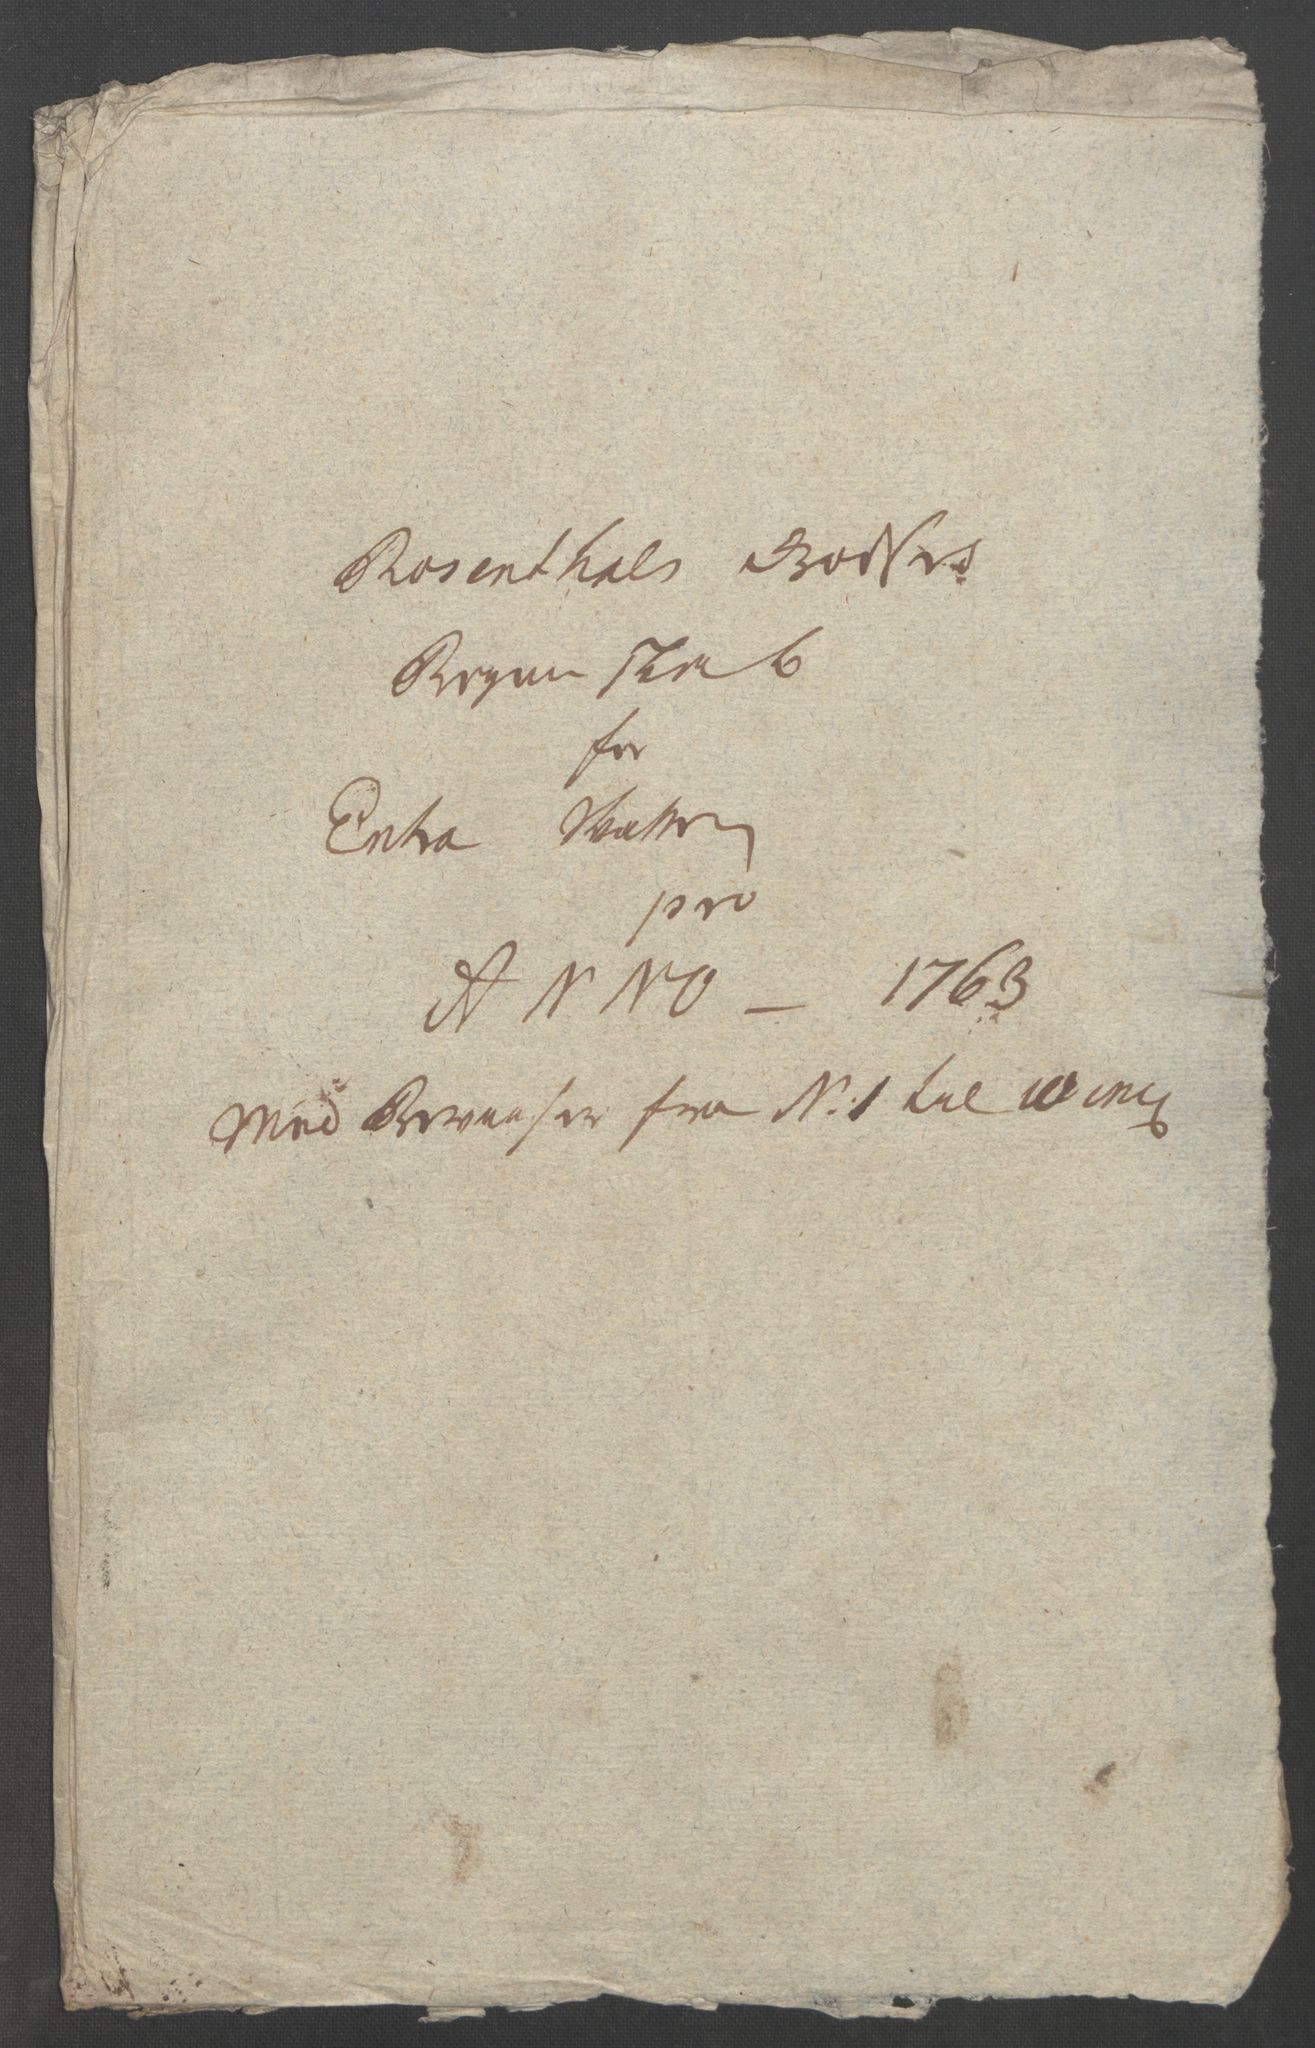 Rosenthals Godses
Regenskab
for
Extra Skatten
pro
ANNO - 1763
Med Beviiser fra N: 1 til incl